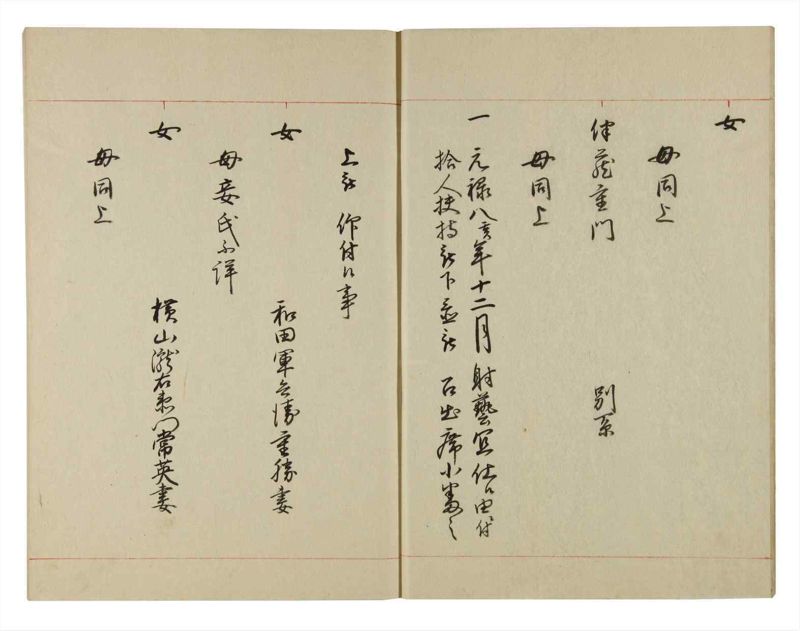 女
母同上
伴蔵重門 別系
母同上
一元禄八亥年十二月射藝宜仕候由付
拾人扶持被下並被 召出席小番之
上被 仰付候事
女 和田軍兵衛重勝妻
母妾氏不詳
女 横山瀧右衛門常英妻
母同上